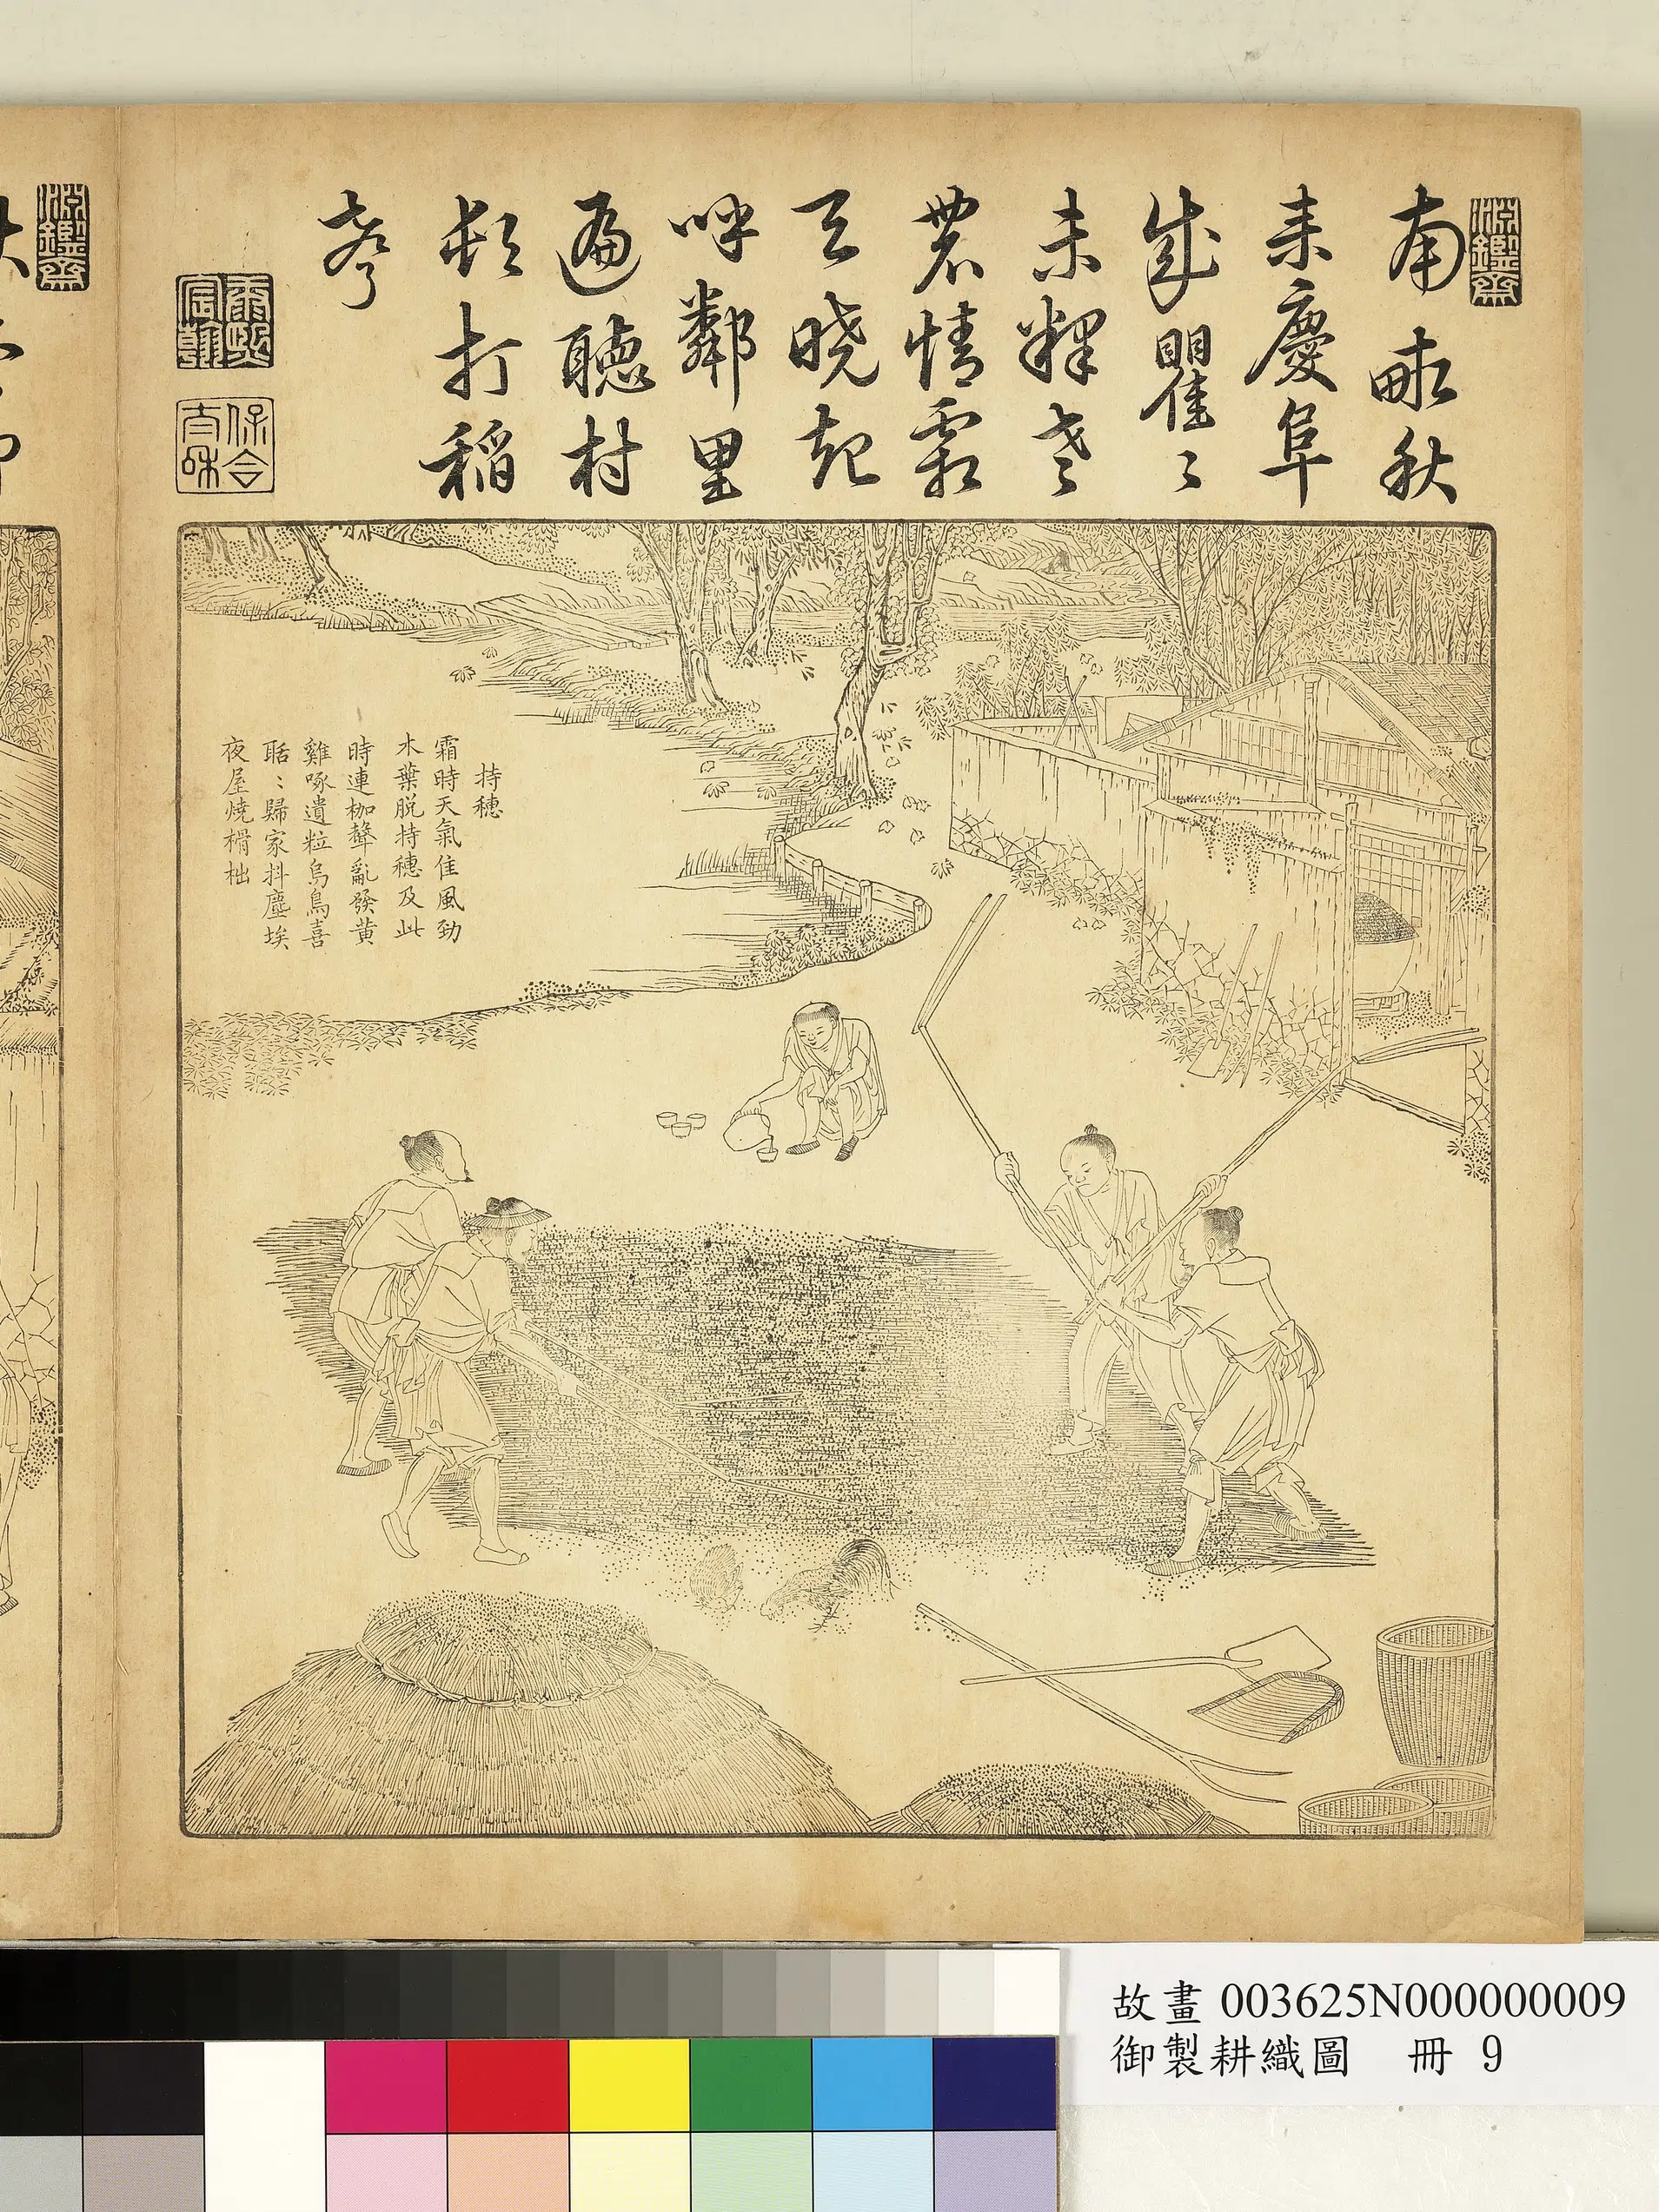 淵鑒齋
南畝秋
来慶阜
成瞿〻
未釋老
農情霜
天曉起
呼鄰里
遍聽村
村打稻
聲
康熙宸翰
保合太和
持穗
霜時天氣佳風勁
木葉脱持穗及此
時連枷聲亂發黄
雞啄遺粒烏鳥喜
聒〻歸家抖塵埃
夜屋燒榾柮
淵鑒齋
故畫 003625N000000009
御製耕織圖 冊 9